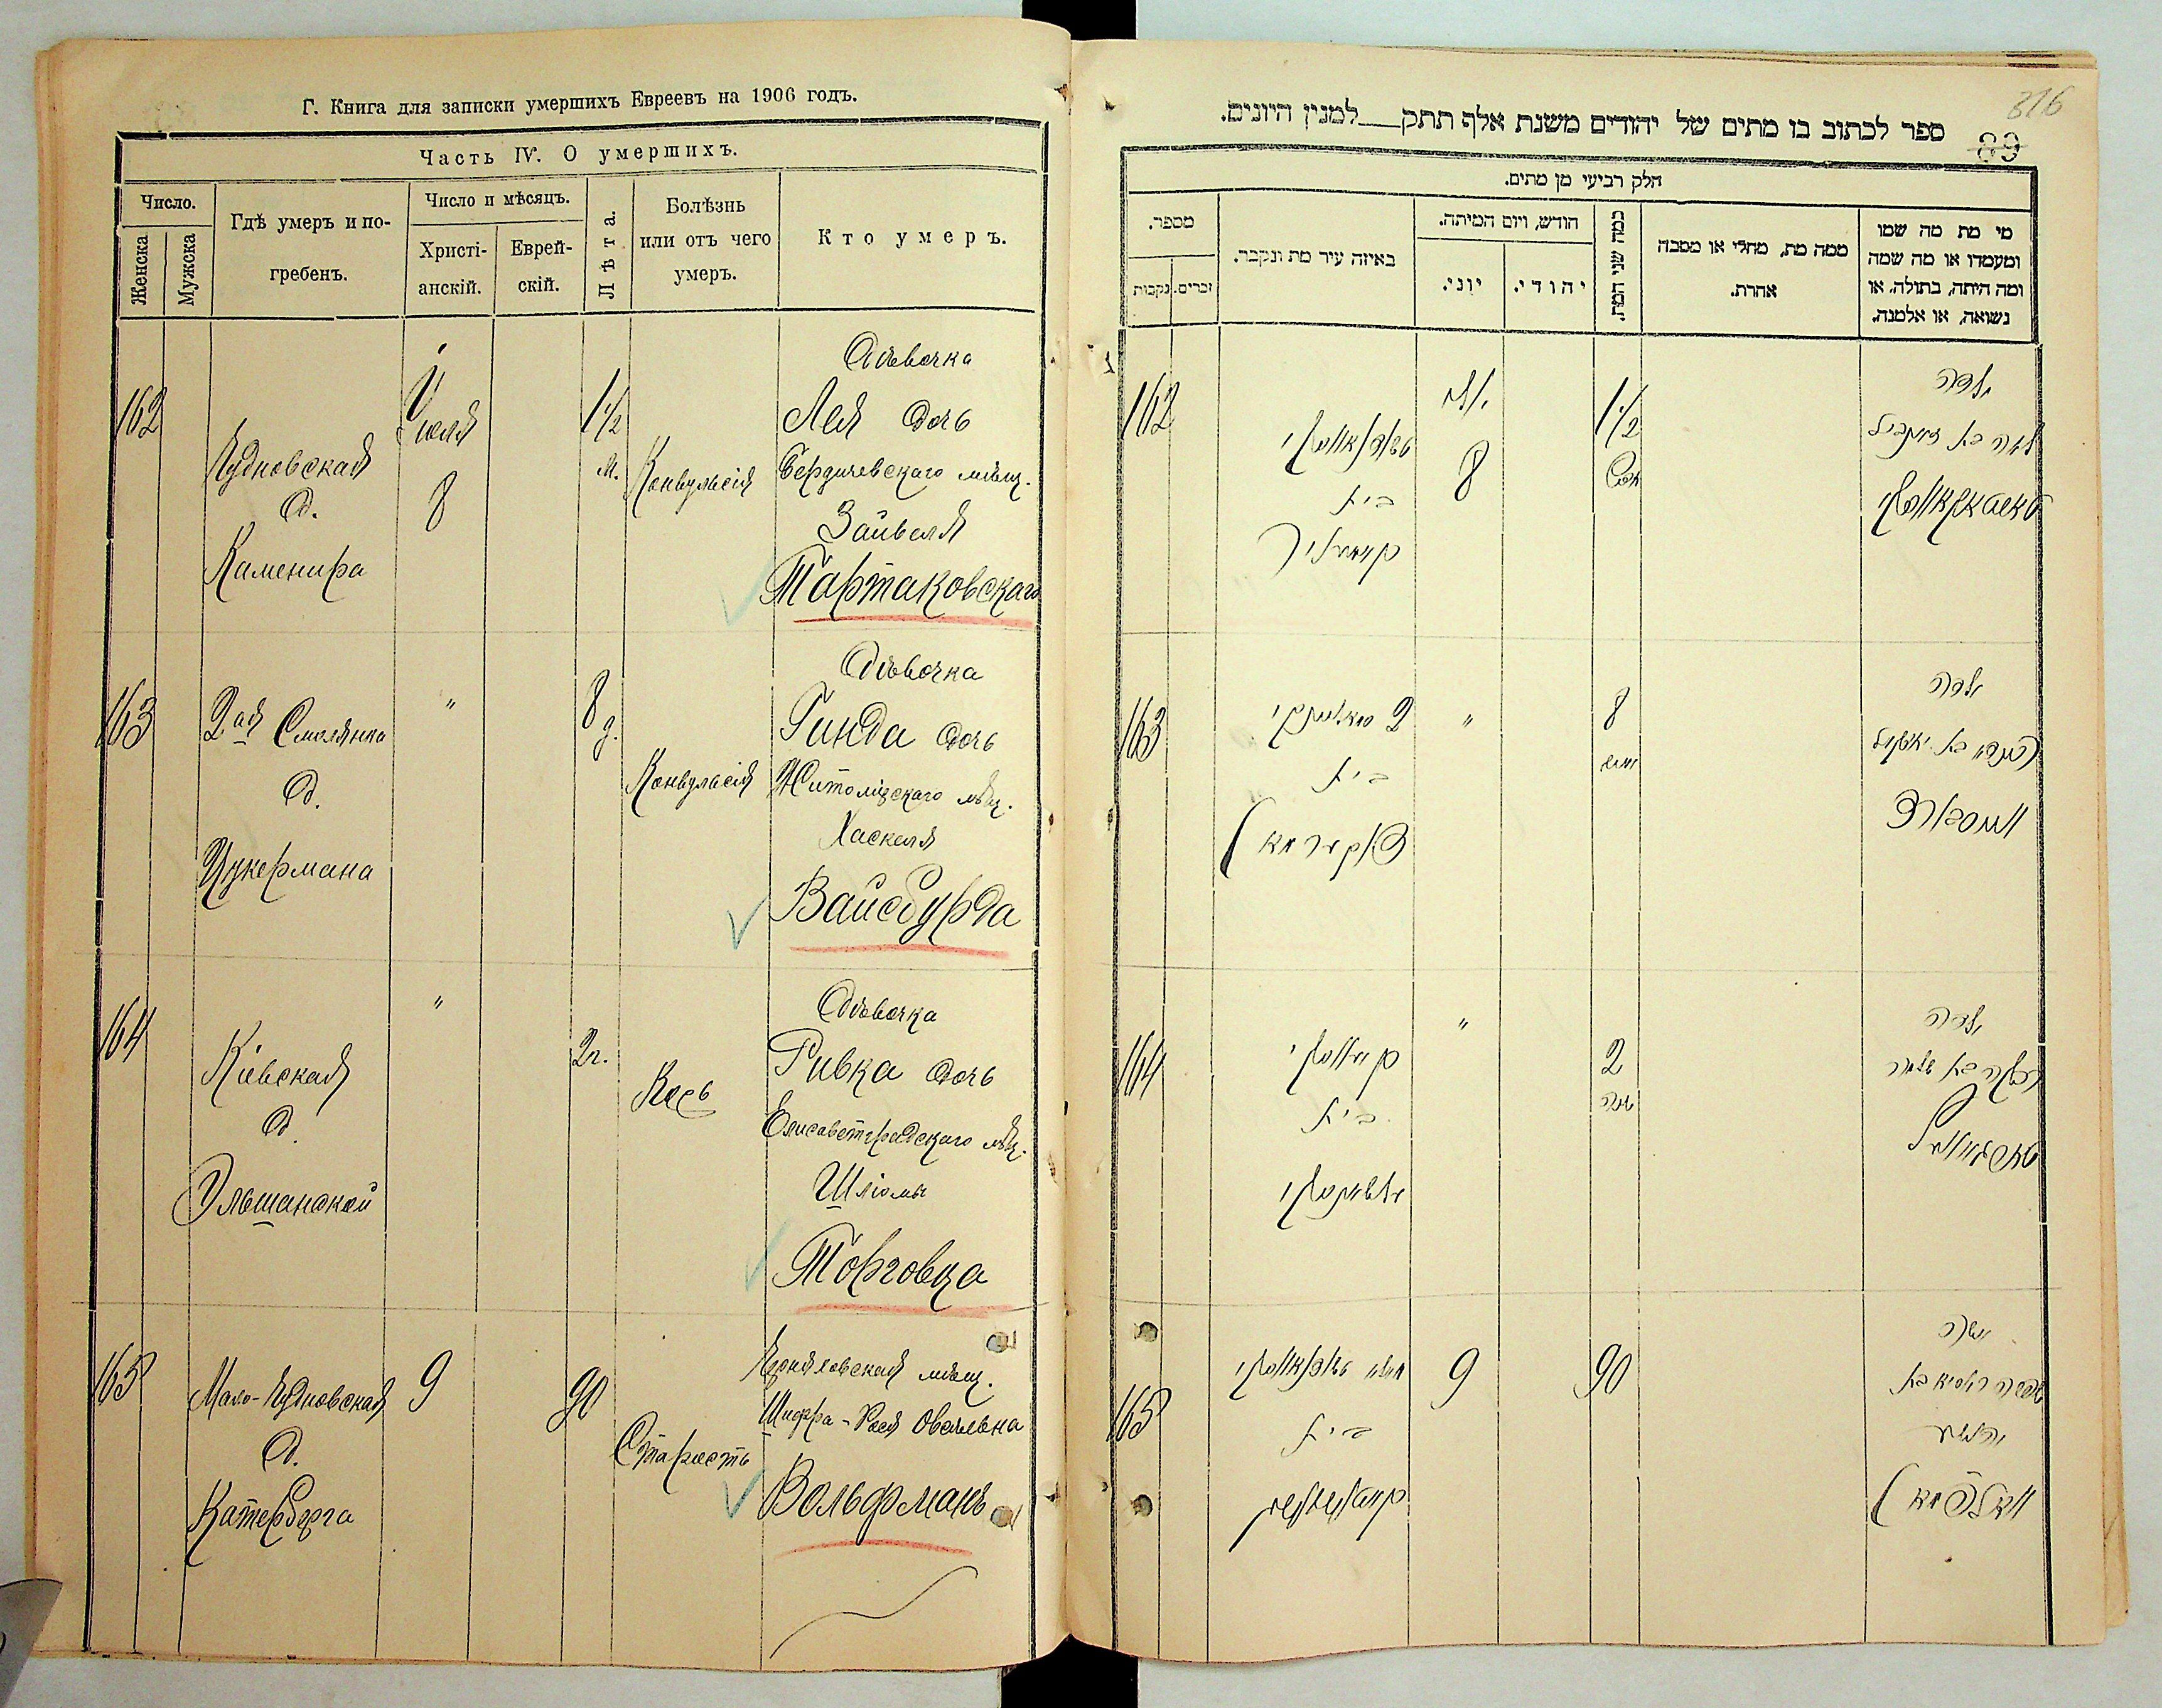 Г. Книга для записки умершихъ Евреевъ на 1906 годъ.
Часть IV. О умершихъ.
Число.
Женска
Мужска
Гдѣ умеръ и по-
гребенъ.
Число и мѣсяцъ.
Христі-
анскій.
Еврей-
скій.
Лѣта.
Болѣзнь
или отъ чего
умеръ.
Кто умеръ.
162
Чудновская
д.
Каменира
Іюля
8
1½
м.
Конвульсія
Дѣвочка
Лея дочь
Бердичевскаго мѣщ.
Зайвеля
Тартаковскаго
163
2ая Смолянка
д.
Цукермана
"
8
д.
Конвульсія
Дѣвочка
Гинда дочь
Житомірскаго мѣщ.
Хаскеля
Вайсбурда
164
Кіевская
д.
Ольшанской
"
2 г.
Корь
Дѣвочка
Ривка дочь
Елисаветградскаго мѣщ.
Шліомы
Торговца
165
Мало-Чудновская
д.
Катербурга
9
90
Старость
мѣщ.
Шифра-Рося Овсѣевна
Вольфманъ
316
89
ספר לכתוב בו מתים של יהודים משנת אלף תתק___למנין היונים.
חלק רביעי מן מתים.
מספר.
זכרים.
נקבות
באיזה עיר מת ונקבר.
חודש, ויום המיתה.
יוני.
יהודי.
כמה שני המת.
ממה מת, מחלי או מסבה
אחרת.
מי מת מה שמו
ומעמדו או מה שמה
ומה היתה, בתולה, או
נשואה, או אלמנה.
162
בית
8
1½
ילדה
לאה בת
טארטאקאווסקי
163
2
בית
צוקערמאן
"
8
ילדה
הינדא בת
164
בית
"
2
שנה
ילדה
רבקה בת שלמה
165
בית
9
90
אשה
וואלפמאן